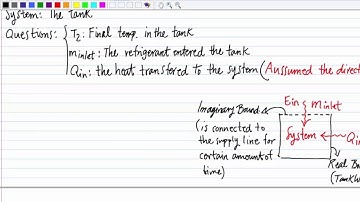 System: The Tank
Questions: { T2: Final temp. in the tank
minlet: The refrigerant entered the tank
Qin: the heat transferred to the system (Aussumed the direct
Imaginary Bound.
(is connected to
the supply line for
certain amount of
time)
Ein minlet
System
Qin
Real Bo
(Tank W